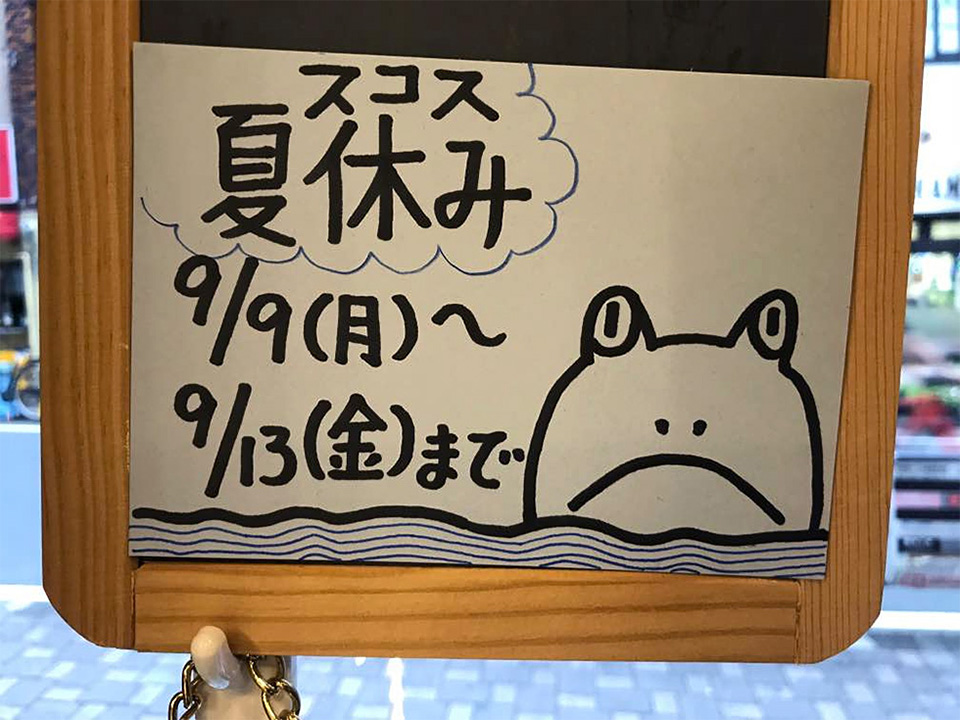 スコス
夏休み
9/9(月)〜
9/13(金)まで